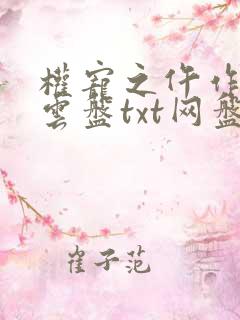 權寵之仵作
雲盤txt网盤
崔子范